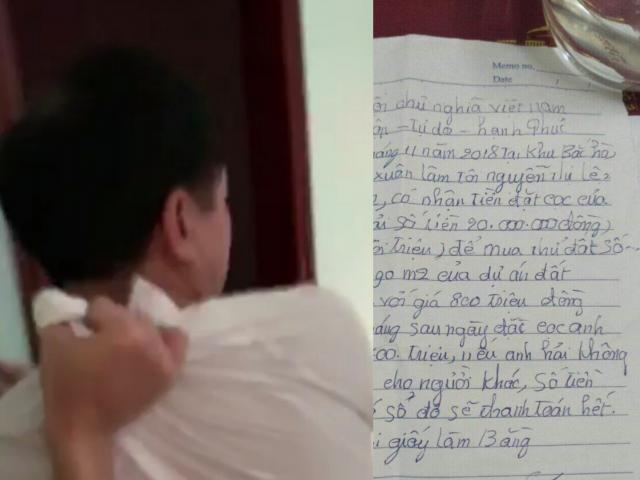 Memo no.
Date
chủ nghĩa việt nam
Tự do - hạnh Phúc
11 năm 2018 Tại Khu Bắc hà
xuân lâm Tôi nguyễn thị lê
có nhận Tiền đặt cọc của
số tiền 20.000.000 đồng)
Triệu) để mua thử đất số
90 m2 của dự án đất
với giá 800 triệu đồng
sau ngày đặt cọc anh
00. Triệu, nếu anh hải không
cho người khác, số tiền
sổ đỏ sẽ thanh toán hết.
giấy làm Bằng